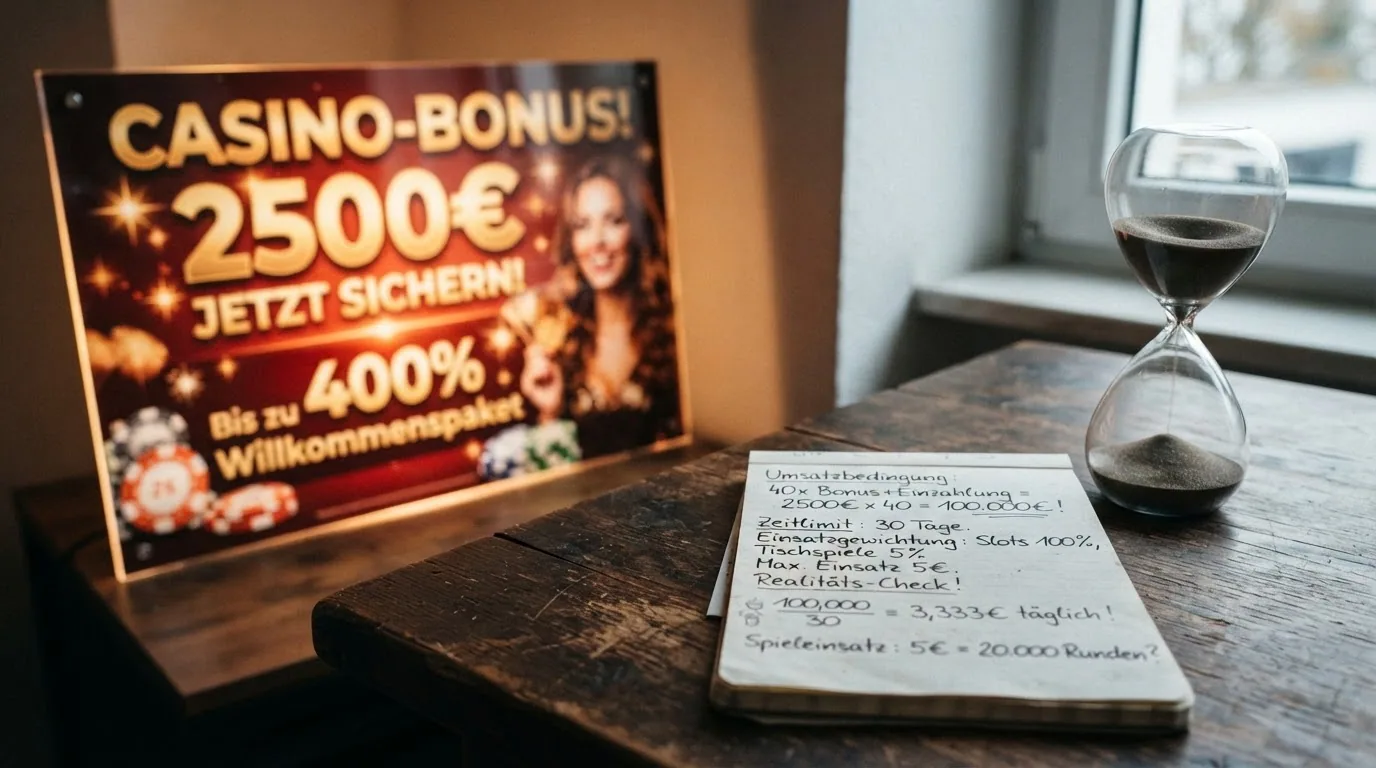 CASINO-BONUS!
2500€
JETZT SICHERN!
Bis zu 400%
Willkommenspaket
Umsatzbedingung:
40x Bonus+Einzahlung =
2500€ x 40 = 100.000€!
Zeitlimit: 30 Tage.
Einsatzgewichtung: Slots 100%,
Tischspiele 5%
Max. Einsatz 5€.
Realitäts-Check!
100,000
30
= 3,333€ täglich!
Spieleinsatz: 5€ = 20.000 Runden?